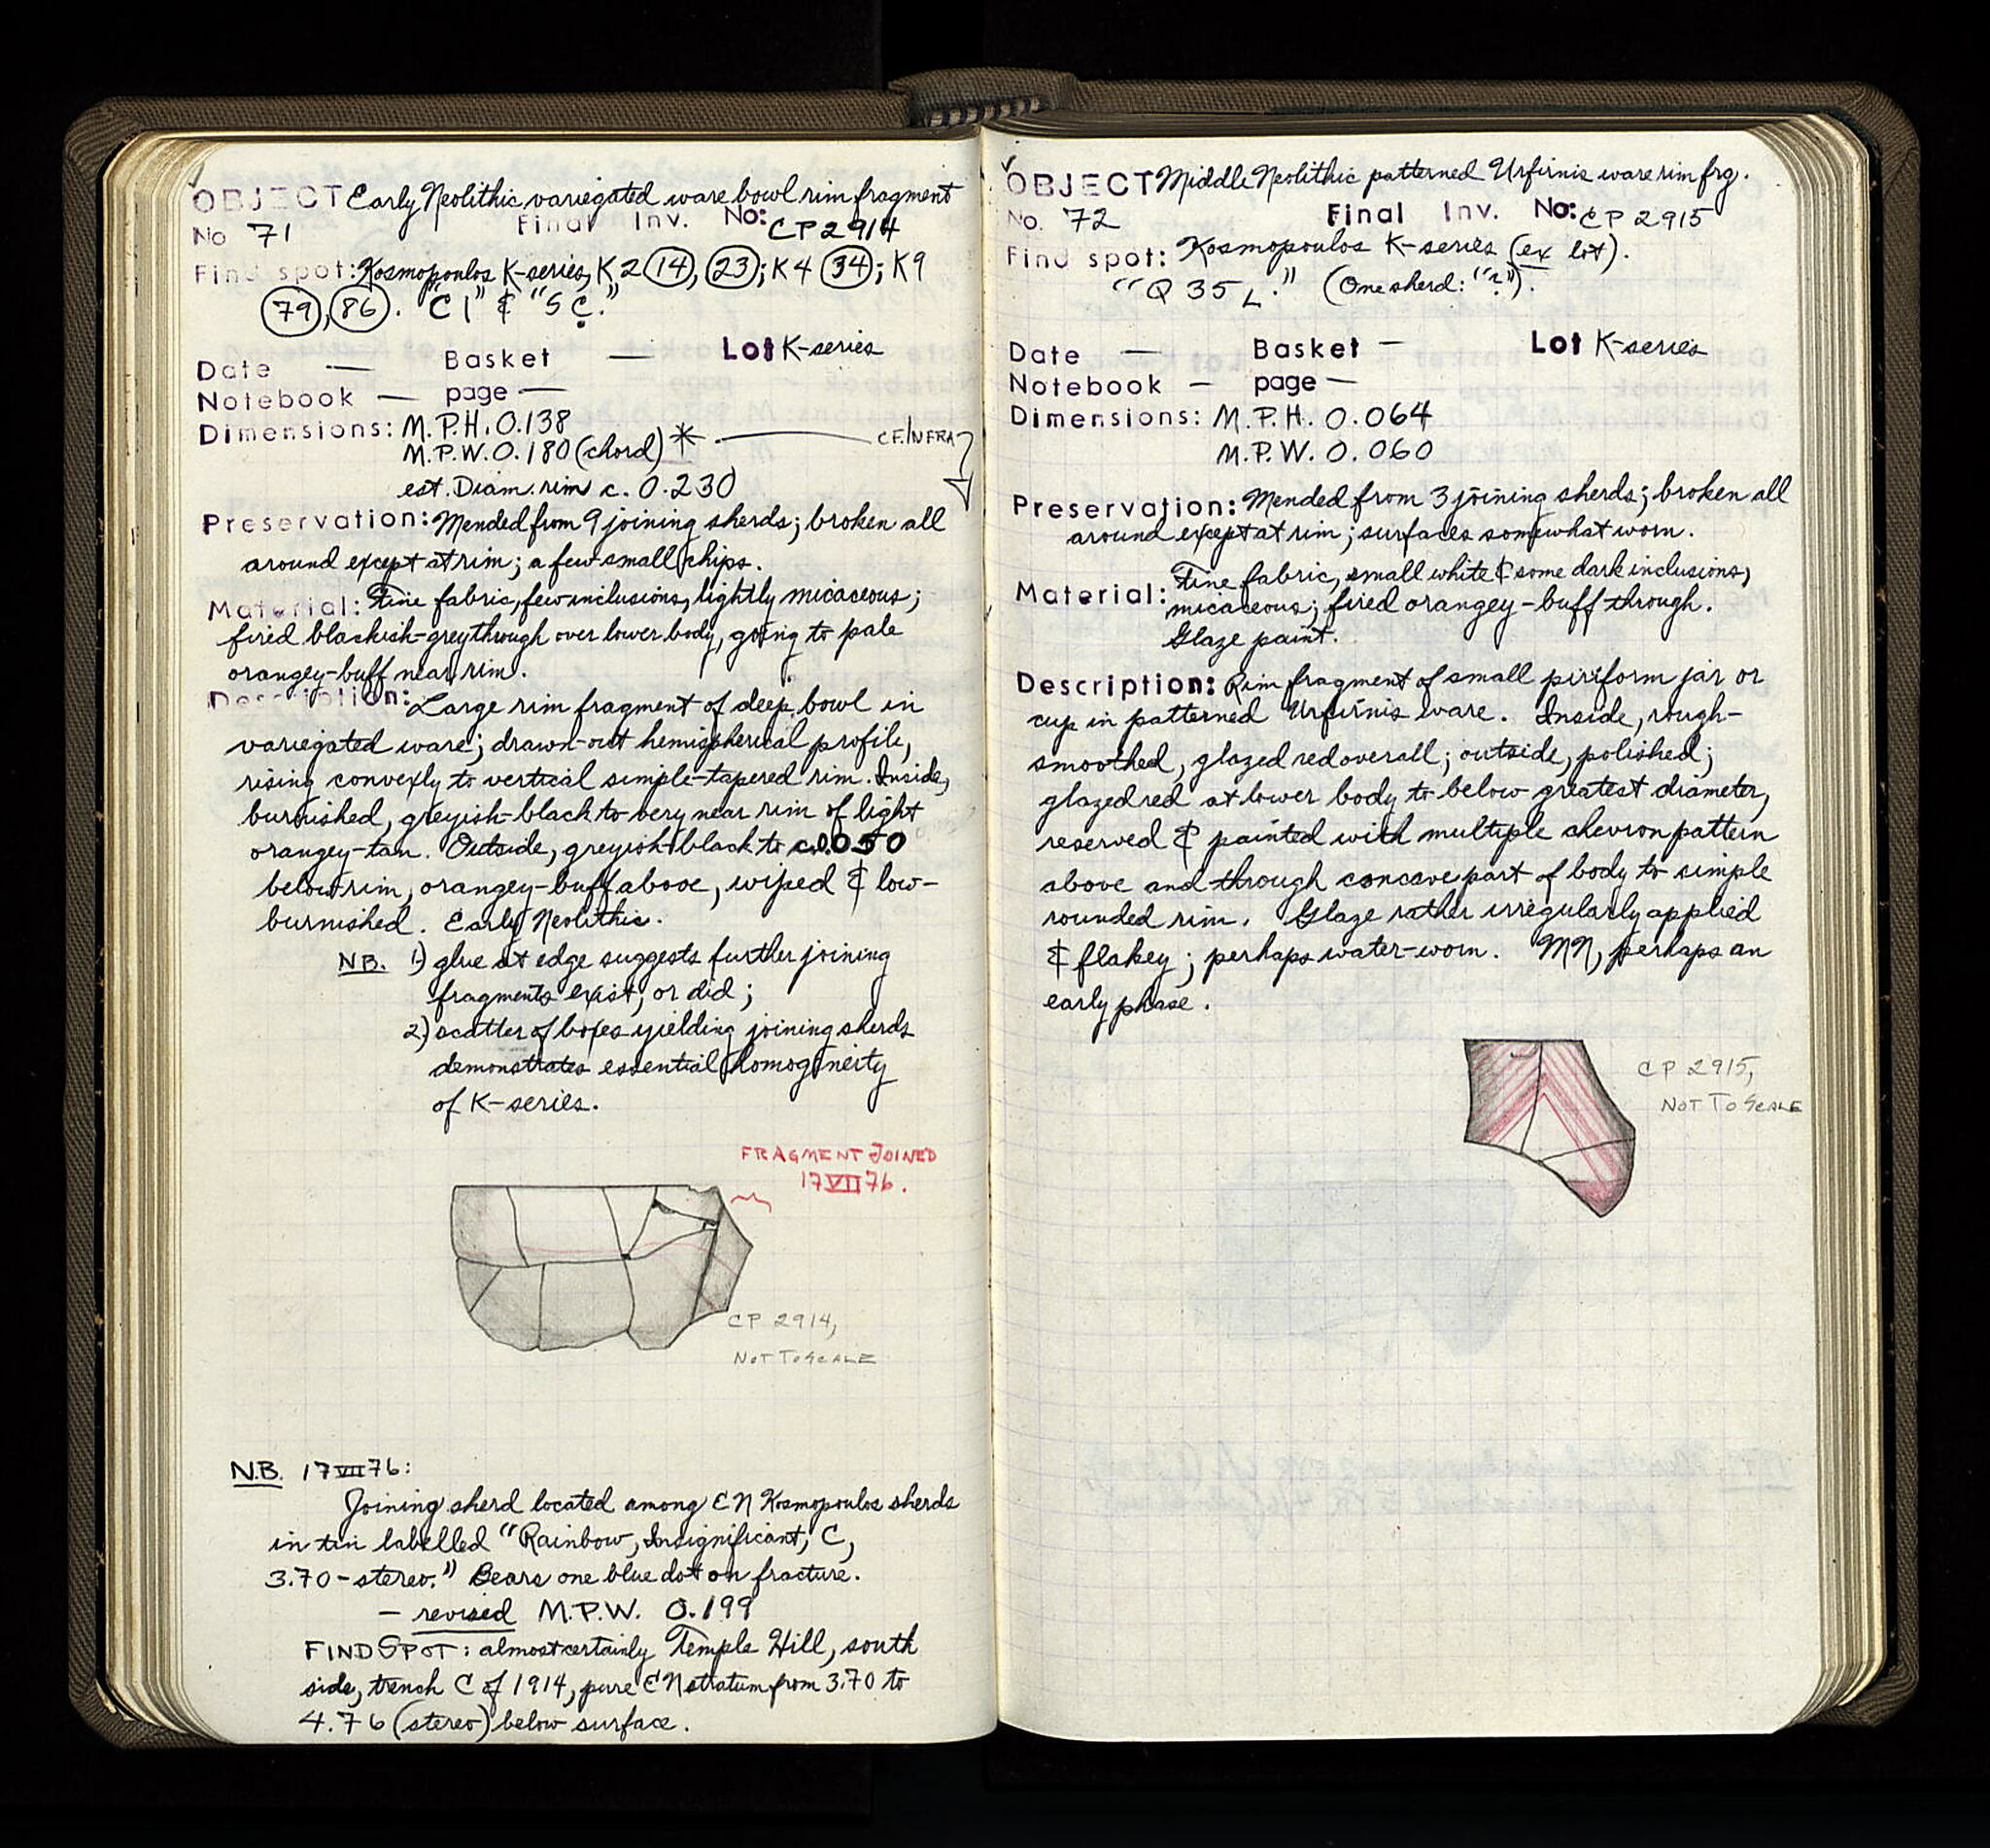 ✓
OBJECT Early Neolithic variegated ware bowl rim fragment
No 71 Final Inv. No: CP 2914
Find spot: Kosmopoulos K-series, K 2 (14), (23); K 4 (34); K 9
(79), (86). "C I" & "S C."
Date — Basket — Lot K-series
Notebook — page —
Dimensions: M.P.H. 0.138
M.P.W. 0.180 (chord) * — CF. INFRA
est. Diam. rim c. 0.230
Preservation: Mended from 9 joining sherds; broken all
around except at rim; a few small chips.
Material: Fine fabric, few inclusions, lightly micaceous;
fired blackish-grey through over lower body, going to pale
orangey-buff near rim.
Description: Large rim fragment of deep bowl in
variegated ware; drawn-out hemispherical profile,
rising convexly to vertical simple-tapered rim. Inside,
burnished, greyish-black to very near rim of light
orangey-tan. Outside, greyish-black to c. 0.050
below rim, orangey-buff above, wiped & low-
burnished. Early Neolithic.
NB. 1) glue at edge suggests further joining
fragments exist, or did;
2) scatter of boxes yielding joining sherds
demonstrates essential homogineity
of K-series.
FRAGMENT JOINED
17 VII 76.
CP 2914,
NOT TO SCALE
N.B. 17 VII 76:
Joining sherd located among EN Kosmopoulos sherds
in tin labelled "Rainbow, Insignificant, C,
3.70 - stereo." Bears one blue dot on fracture.
— revised M.P.W. 0.199
FINDSPOT: almost certainly Temple Hill, south
side, trench C of 1914, pure EN stratum from 3.70 to
4.76 (stereo) below surface.
✓
OBJECT Middle Neolithic patterned Urfirnis ware rim frg.
No. 72 Final Inv. No: CP 2915
Find spot: Kosmopoulos K-series (ex lot).
"Q 35 L." (One sherd: "?").
Date — Basket — Lot K-series
Notebook — page —
Dimensions: M.P.H. 0.064
M.P.W. 0.060
Preservation: Mended from 3 joining sherds; broken all
around except at rim; surfaces somewhat worn.
Material: Fine fabric, small white & some dark inclusions,
micaceous; fired orangey-buff through.
Glaze paint.
Description: Rim fragment of small piriform jar or
cup in patterned Urfirnis ware. Inside, rough-
smoothed, glazed red overall; outside, polished;
glazed red at lower body to below greatest diameter,
reserved & painted with multiple chevron pattern
above and through concave part of body to simple
rounded rim. Glaze rather irregularly applied
& flakey; perhaps water-worn. MN, perhaps an
early phase.
CP 2915,
NOT TO SCALE